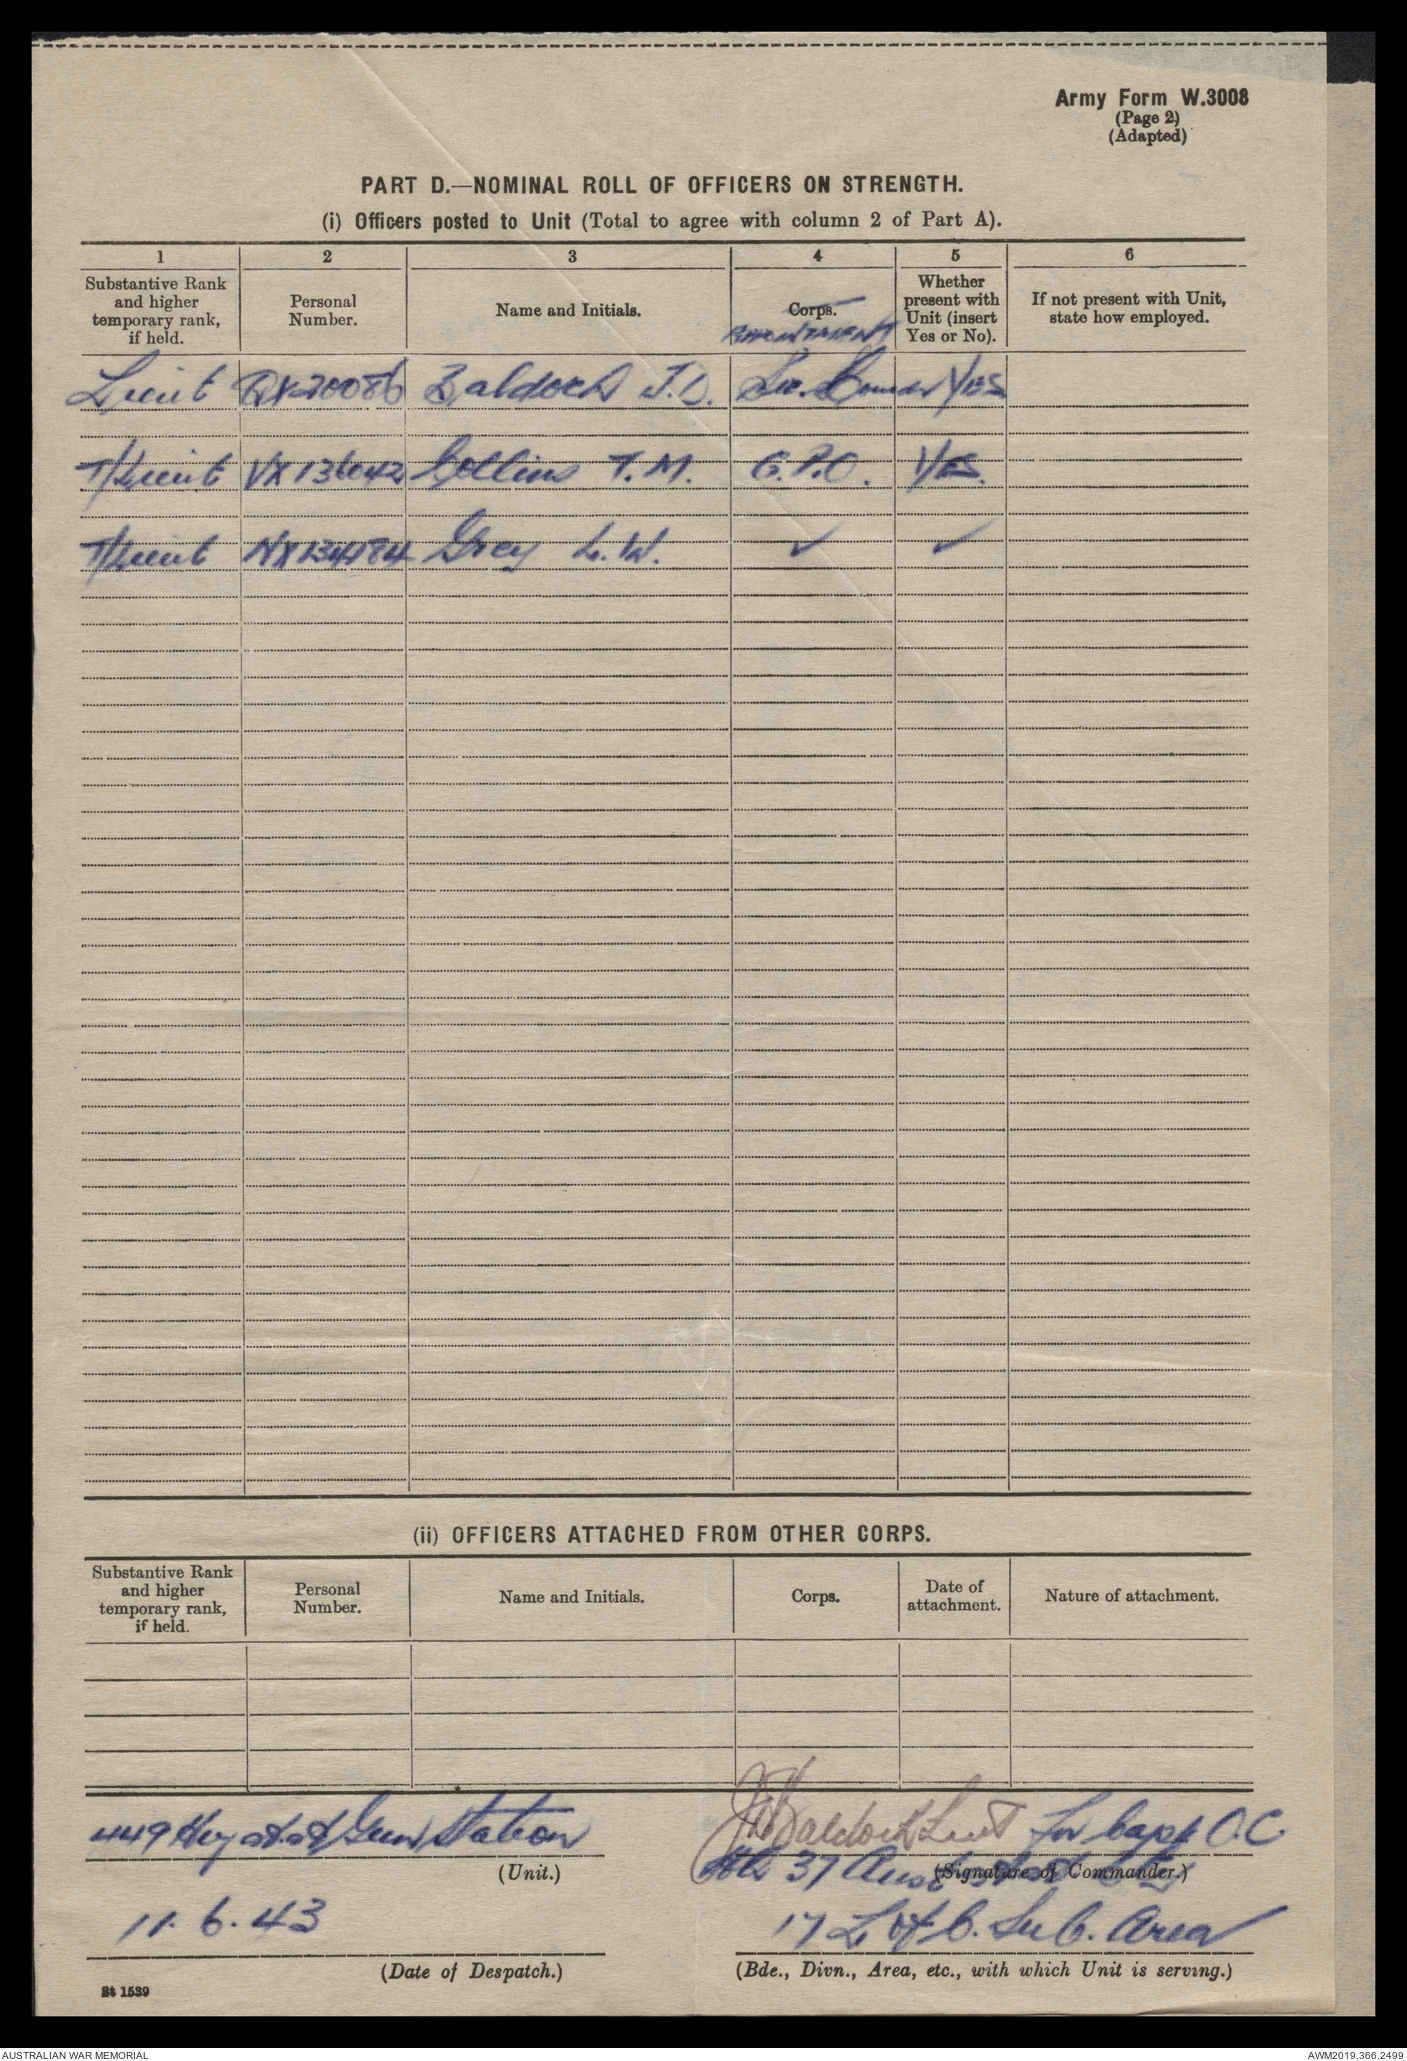 Army Form W.3008
(Page 2)
(Adapted)
PART D.—NOMINAL ROLL OF OFFICERS ON STRENGTH.
(i) Officers posted to Unit (Total to agree with column 2 of Part A).
1 2 3 4 5 6
Substantive Rank and higher temporary rank, if held.
Personal Number.
Name and Initials.
Corps.
APPOINTMENT
Whether present with Unit (insert Yes or No).
If not present with Unit, state how employed.
Lieut QX20086 Baldock J.D. YES
T/Lieut VX136042 Collins T.M. G.P.O. YES.
T/Lieut NX134184 Grey L.W. ✓ ✓
(ii) OFFICERS ATTACHED FROM OTHER CORPS.
Substantive Rank and higher temporary rank, if held.
Personal Number.
Name and Initials.
Corps.
Date of attachment.
Nature of attachment.
449 Hvy Gun Station
(Unit.)
Baldock Lieut for Capt O.C.
37 Aust
(Signature of Commander.)
11.6.43
(Date of Despatch.)
17 L of C. Sub. Area
(Bde., Divn., Area, etc., with which Unit is serving.)
St 1539
AUSTRALIAN WAR MEMORIAL
AWM2019.366.2499